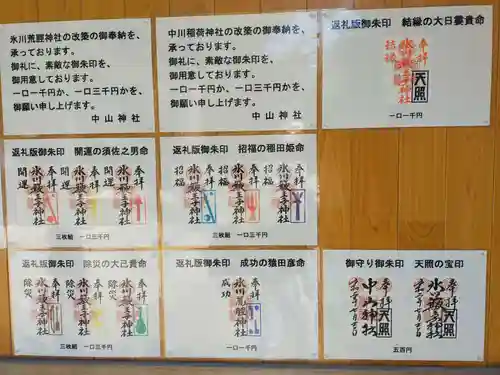 氷川荒脛神社の改築の御奉納を、
承っております。
御礼に、素敵な御朱印を、
御用意しております。
一口一千円か、一口三千円かを、
御願い申し上げます。
中山神社
中川稲荷神社の改築の御奉納を、
承っております。
御礼に、素敵な御朱印を、
御用意しております。
一口一千円か、一口三千円かを、
御願い申し上げます。
中山神社
返礼版御朱印 結縁の大日孁貴命
奉拝
結縁
天照
一口一千円
返礼版御朱印 開運の須佐之男命
奉拝
氷川
神社
開運
奉拝
氷川
神社
開運
奉拝
氷川
神社
三枚組 一口三千円
返礼版御朱印 招福の稲田姫命
奉拝
氷川
神社
招福
奉拝
氷川
神社
招福
奉拝
氷川
神社
招福
三枚組 一口三千円
返礼版御朱印 除災の大己貴命
奉拝
氷川
神社
除災
奉拝
氷川
神社
除災
奉拝
氷川
神社
三枚組 一口三千円
返礼版御朱印 成功の猿田彦命
奉拝
氷川
神社
成功
一口一千円
御守り御朱印 天照の宝印
奉拝
天照
奉拝
中山神社
天照
五百円